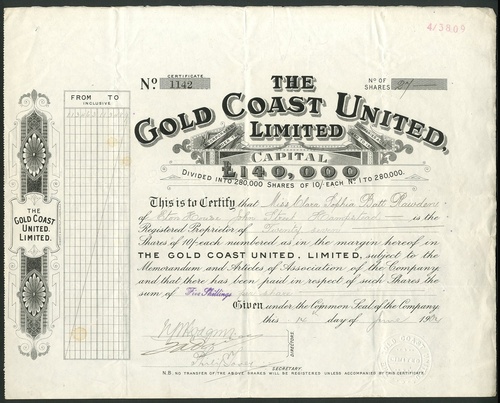 4/3809
No
CERTIFICATE
1142
No OF SHARES 27
THE
GOLD COAST UNITED,
LIMITED
CAPITAL
£140,000
DIVIDED INTO 280,000 SHARES OF 10/- EACH No 1 TO 280,000.
FROM TO
INCLUSIVE
THE
GOLD COAST
UNITED.
LIMITED.
This is to Certify that Miss Clara Batt
of House John Street Hampstead is the
Registered Proprietor of Twenty seven
Shares of 10/- each numbered as in the margin hereof in
THE GOLD COAST UNITED, LIMITED, subject to the
Memorandum and Articles of Association of the Company,
and that there has been paid in respect of such Shares the
sum of Five Shillings per share
Given under the Common Seal of the Company
this 14th day of June 19
DIRECTORS
SECRETARY.
N.B. NO TRANSFER OF THE ABOVE SHARES WILL BE REGISTERED UNLESS ACCOMPANIED BY THIS CERTIFICATE.